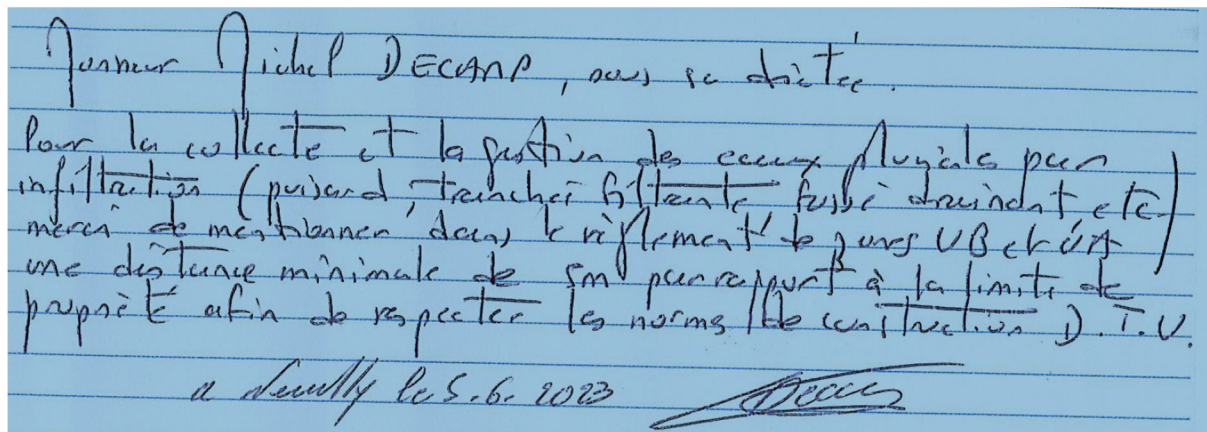 Monsieur Michel DECAMP, sous sa dictée.
Pour la collecte et la gestion des eaux pluviales par
infiltration (puisard, tranchée filtrante fossé draindnt, etc)
merci de mentionner dans le règlement de zones UB et UA
une distance minimale de 5m par rapport à la limite de
propriété afin de respecter les normes de construction D.T.U.
a Neuilly le 5.6.2023